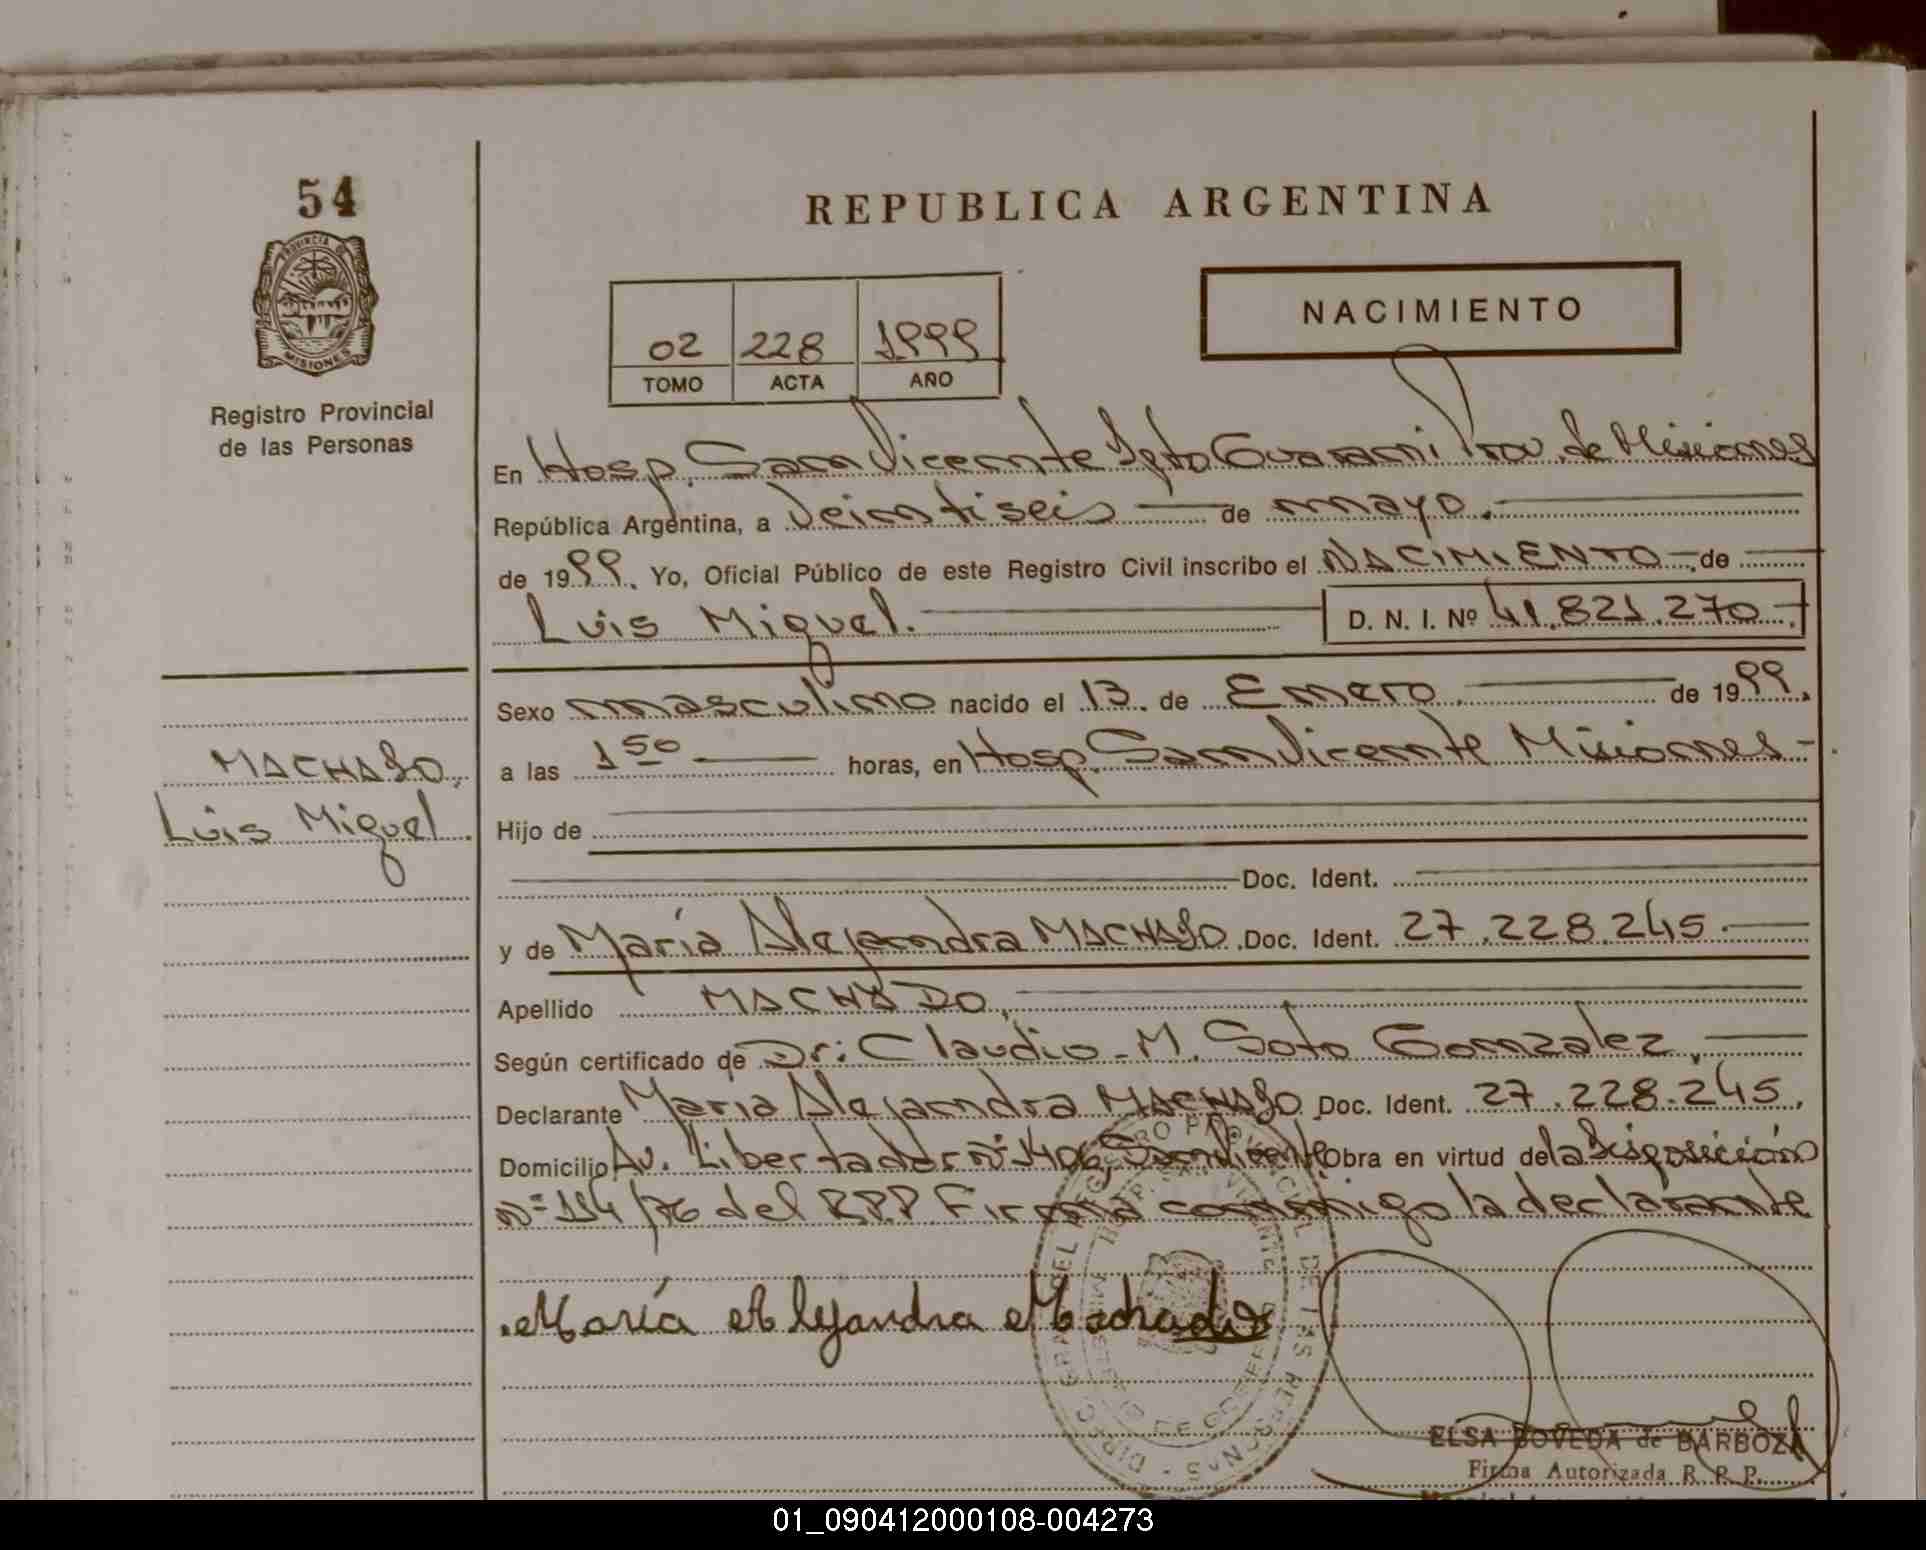 54
PROVINCIA DE
MISIONES
Registro Provincial
de las Personas
REPUBLICA ARGENTINA
NACIMIENTO
02 228 1999
TOMO ACTA AÑO
En Hosp. San Vicente Dpto Guarani Prov. de Misiones
República Argentina, a Veintiseis de mayo.
de 1999. Yo, Oficial Público de este Registro Civil inscribo el NACIMIENTO de
Luis Miguel. D. N. I. Nº 41.821.270.-
Sexo masculino nacido el 13. de Enero. de 1999.
MACHADO,
a las 1 50 horas, en Hosp. San Vicente Misiones-
Luis Miguel.
Hijo de
Doc. Ident.
y de María Alejandra MACHADO. Doc. Ident. 27.228.245.
Apellido MACHADO,
Según certificado de Dr: Claudio-M. Soto Gonzalez,
Declarante María Alejandra MACHADO. Doc. Ident. 27.228.245,
Domicilio Av. Libertador Nº 1406, San Vicente Obra en virtud de la Disposición
Nº 114/76 del R.P.P. Firma conmigo la declarante
María Alejandra Machado
ELSA BOVEDA de BARBOZA
Firma Autorizada R. P. P.
01_090412000108-004273